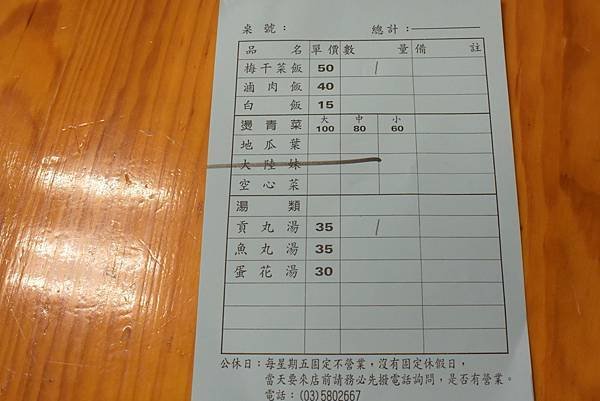 桌號： 總計：
品名 單價 數量 備註
梅干菜飯 50 1
滷肉飯 40
白飯 15
燙青菜 大100 中80 小60
地瓜葉
大陸妹
空心菜
湯類
貢丸湯 35 1
魚丸湯 35
蛋花湯 30
公休日：每星期五固定不營業，沒有固定休假日，
當天要來店前請務必先撥電話詢問，是否有營業。
電話：(03)5802667